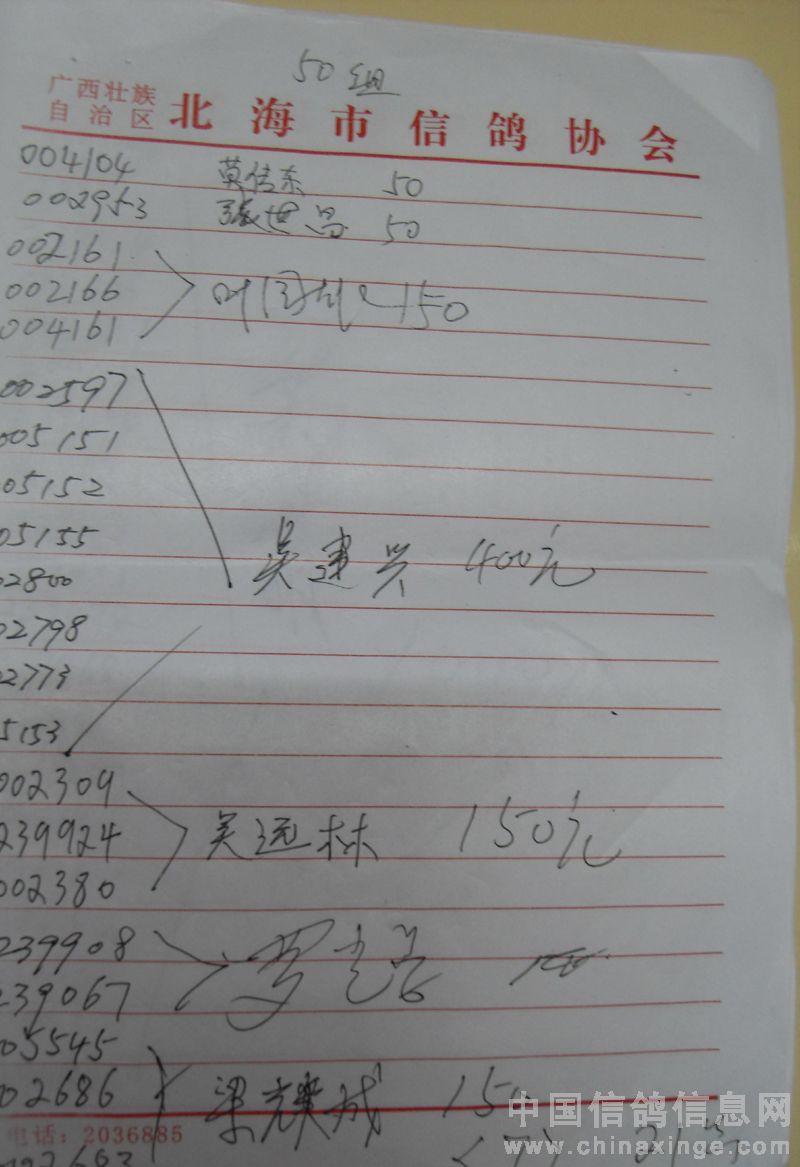 50组
广西壮族
自治区 北海市信鸽协会
004104 莫传东 50
002953 张世昌 50
002161
002166 150
004161
002597
005151
05152
05155
02800 吴建兴 400元
02798
02773
5153
002309
239924 吴远林 150元
002380
239908
239067
05545
02686 梁耀成 15
电话：2036885
中国信鸽信息网
www.chinaxinge.com